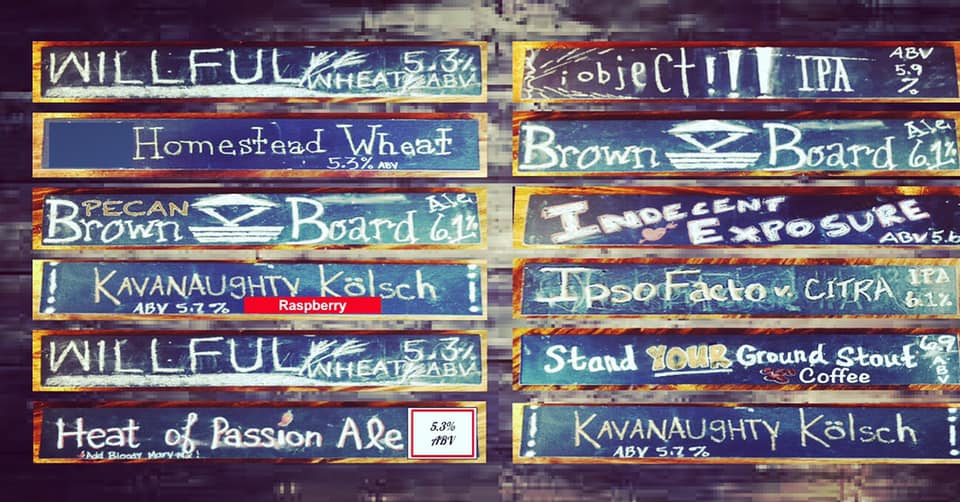 WILLFUL WHEAT 5.3% ABV
Homestead Wheat
5.3% ABV
PECAN
Brown Board Ale 6.1%
KAVANAUGHTY Kölsch
! ABV 5.7% Raspberry !
WILLFUL WHEAT 5.3% ABV
Heat of Passion Ale 5.3% ABV
Add Bloody Mary
iobject!!! IPA ABV 5.9%
Brown Board Ale 6.1%
INDECENT EXPOSURE
ABV 5.6
Ipso Facto v. CITRA IPA 6.1%
Stand YOUR Ground Stout 6.9 ABV
Coffee
! KAVANAUGHTY Kölsch !
ABV 5.7%